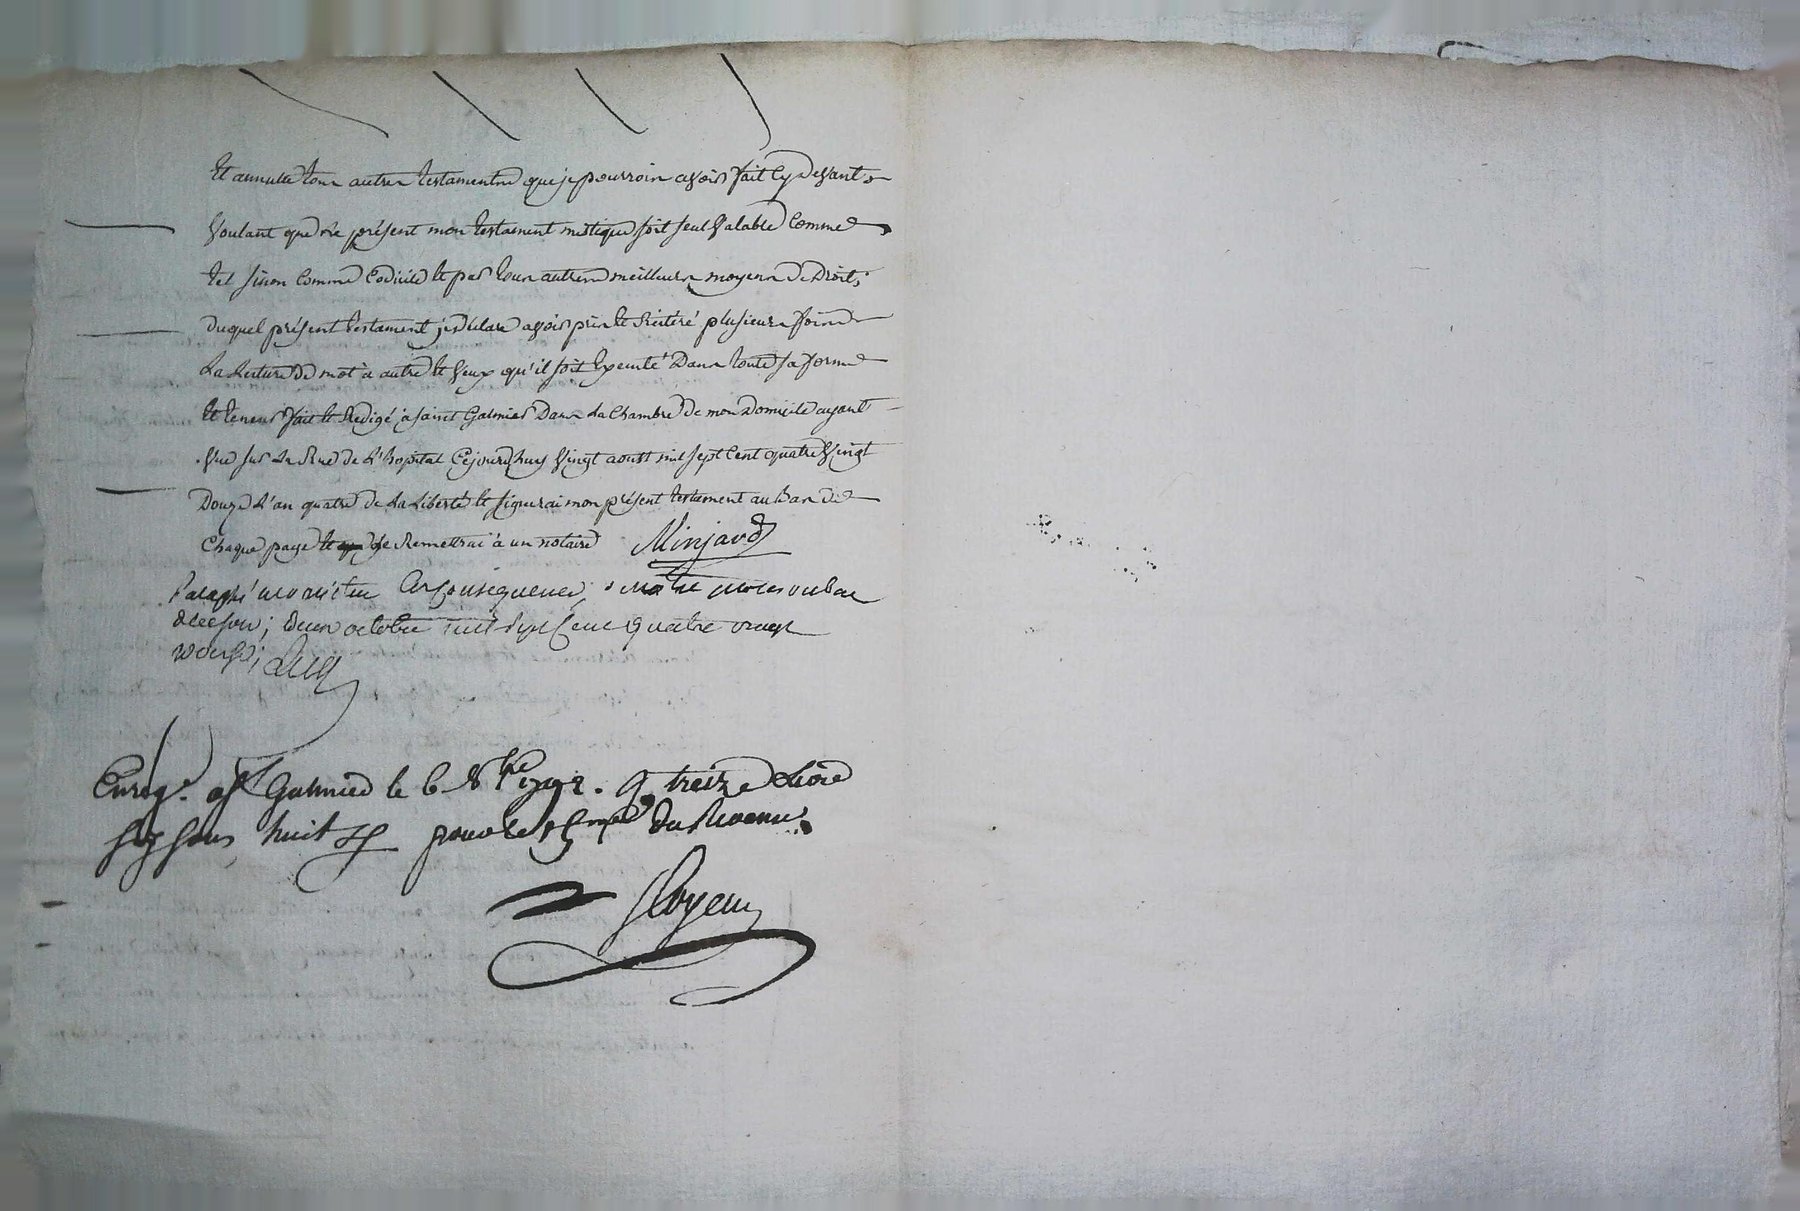 Et annulle tous autres testaments que je pourrois avoir fait cy devant
Voulant que ce présent mon testament mistique soit seul valable comme
tel sinon comme codicile et par tous autres meilleurs moyens de Droit,
duquel présent testament je déclare avoir pris et Réitéré plusieurs fois
La Lecture de mot à autre et veux qu'il soit Exécuté Dans toute sa forme
Et teneur fait et Redigé à saint Galmier Dans La Chambre de mon Domicile ayant
vue sur La Rue de L'hopital Cejourdhuy vingt aoust mil sept Cent quatre vingt
Douze L'an quatre de La Liberté et signerai mon présent testament au bas de
chaque page et le Remettrai à un notaire Minjard
Paraphé ne varietur En conséquence,
octobre mil sept Cent quatre vingt
Enreg. a St Galmier le 6 8bre 1792. R treize Livre
six sous huit pour le du Revenu.